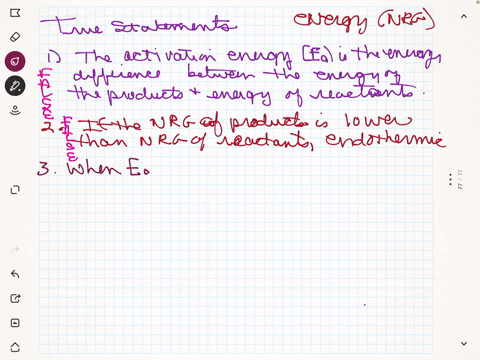 True Statements
energy (NRG)
1) The activation energy (Ea) is the energy
difference between the energy of
the products + energy of reactants.
2. If the NRG of products is lower
than NRG of reactants, endothermic
3. When Ea
77 / 77